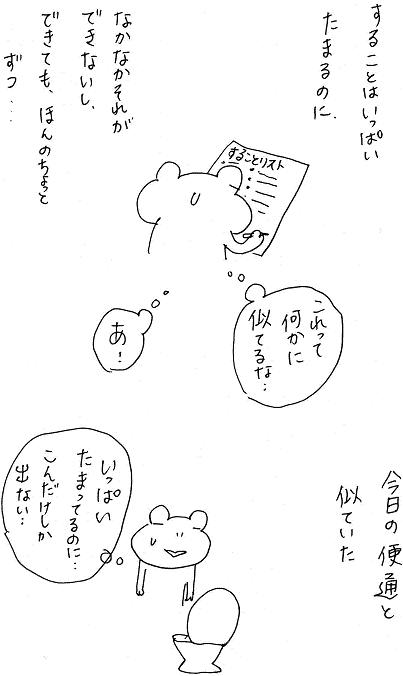 することはいっぱい
たまるのに、
なかなかそれが
できないし、
できても、ほんのちょっと
ずつ…
することリスト
これって
何かに
似てるな…
あ!
今日の便通と
似ていた
いっぱい
たまってるのに…
こんだけしか
出ない…